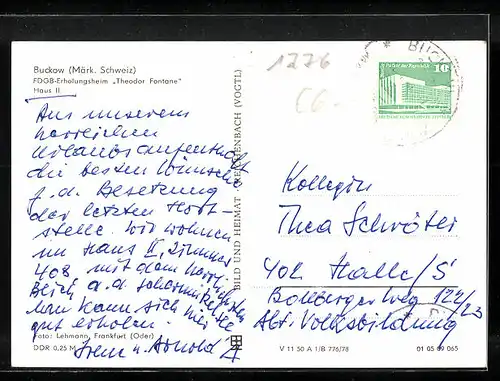 Buckow (Märk. Schweiz)
FDGB-Erholungsheim „Theodor Fontane"
Haus II
Aus unserem
herrlichen
Urlaubsaufenthalt
die besten Wünsche
f. d. Besetzung
der letzten Horst-
stelle. Wir wohnen
im Haus II, Zimmer
408 mit dem herrl.
Blick a. d. Schermützelsee
Man kann sich hier
gut erholen.
Irene u. Arnold
Foto: Lehmann, Frankfurt (Oder)
DDR 0,25 M
BILD UND HEIMAT REICHENBACH (VOGTL)
V 11 50 A 1/B 776/78
01 05 09 065
1276
C6.-
BUCKOW
10
Kollegin
Thea Schröter
402 Halle/S
Böllbergerweg 122/23
Abt. Volksbildung